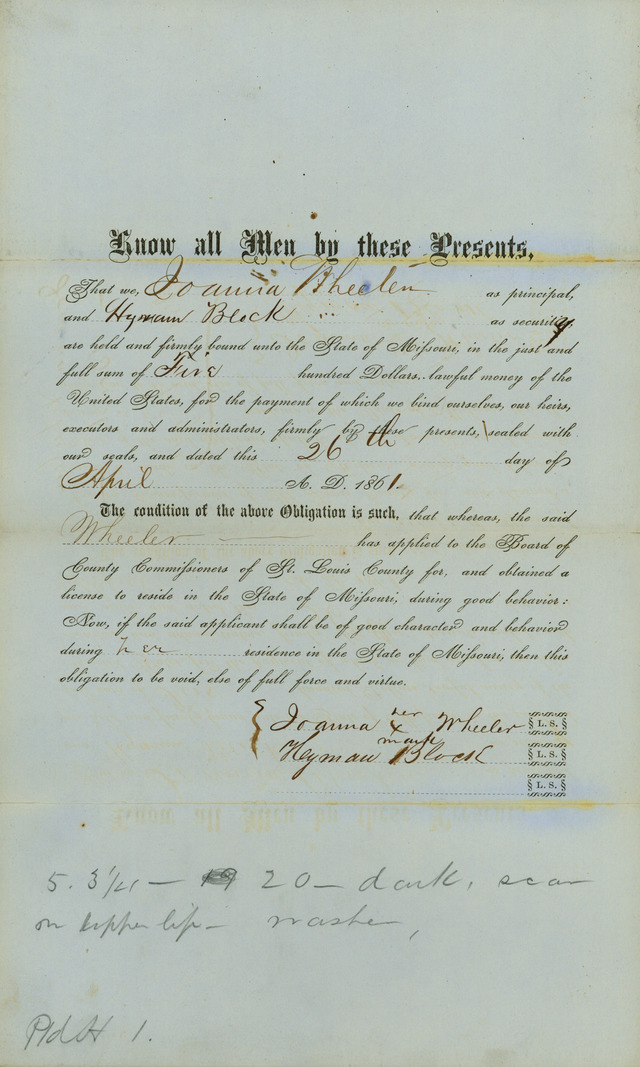 Know all Men by these Presents,
That we, Joanna Wheeler as principal,
and Hyman Block as security
are held and firmly bound unto the State of Missouri, in the just and
full sum of Five hundred Dollars, lawful money of the
United States, for the payment of which we bind ourselves, our heirs,
executors and administrators, firmly by these presents, sealed with
our seals, and dated this 26th day of
April A. D. 1861.
The condition of the above Obligation is such, that whereas, the said
Wheeler has applied to the Board of
County Commissioners of St. Louis County for, and obtained a
license to reside in the State of Missouri, during good behavior:
Now, if the said applicant shall be of good character and behavior
during her residence in the State of Missouri, then this
obligation to be void, else of full force and virtue.
Joanna her x mark Wheeler L. S.
Hyman Block L. S.
L. S.
5. 3 1/4 — 20 — dark, scar
on upper lip — washer,
1.